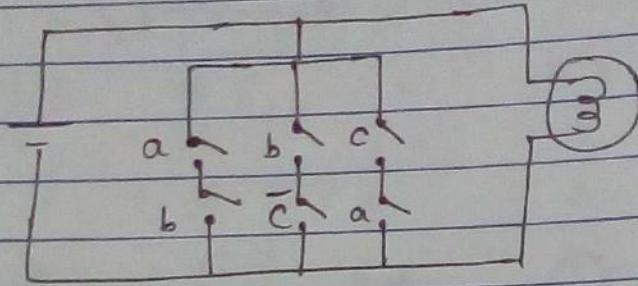 a b c
b c̅ a